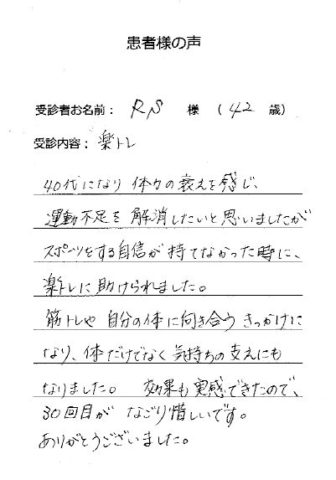 患者様の声
受診者お名前： R.S 様 （42 歳）
受診内容： 楽トレ
40代になり 体力の衰えを感じ、
運動不足を 解消したいと思いましたが
スポーツをする自信が 持てなかった時に、
楽トレに助けられました。
筋トレや 自分の体に向き合う きっかけに
なり、体だけでなく気持ちの支えにも
なりました。 効果も実感できたので、
30回目が なごり惜しいです。
ありがとうございました。